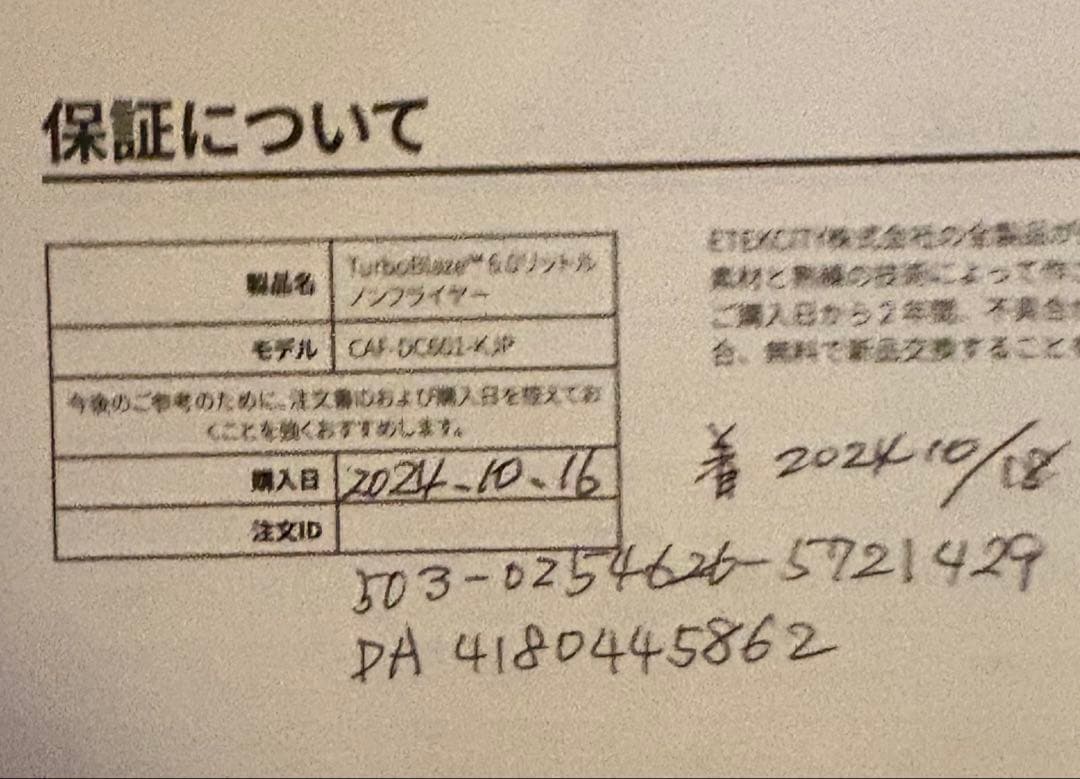 保証について
製品名
TurboBlaze™ 6.0リットル
ノンフライヤー
モデル
CAF-DC601-KJP
今後のご参考のために、注文書IDおよび購入日を控えてお
くことを強くおすすめします。
購入日
2024.10.16
注文ID
503-0254626-5721429
DA 41804445862
ETEKCITY株式会社の全製品が
素材と熟練の技術によって作
ご購入日から2年間、不具合
合、無料で新品交換すること
着 2024 10/18